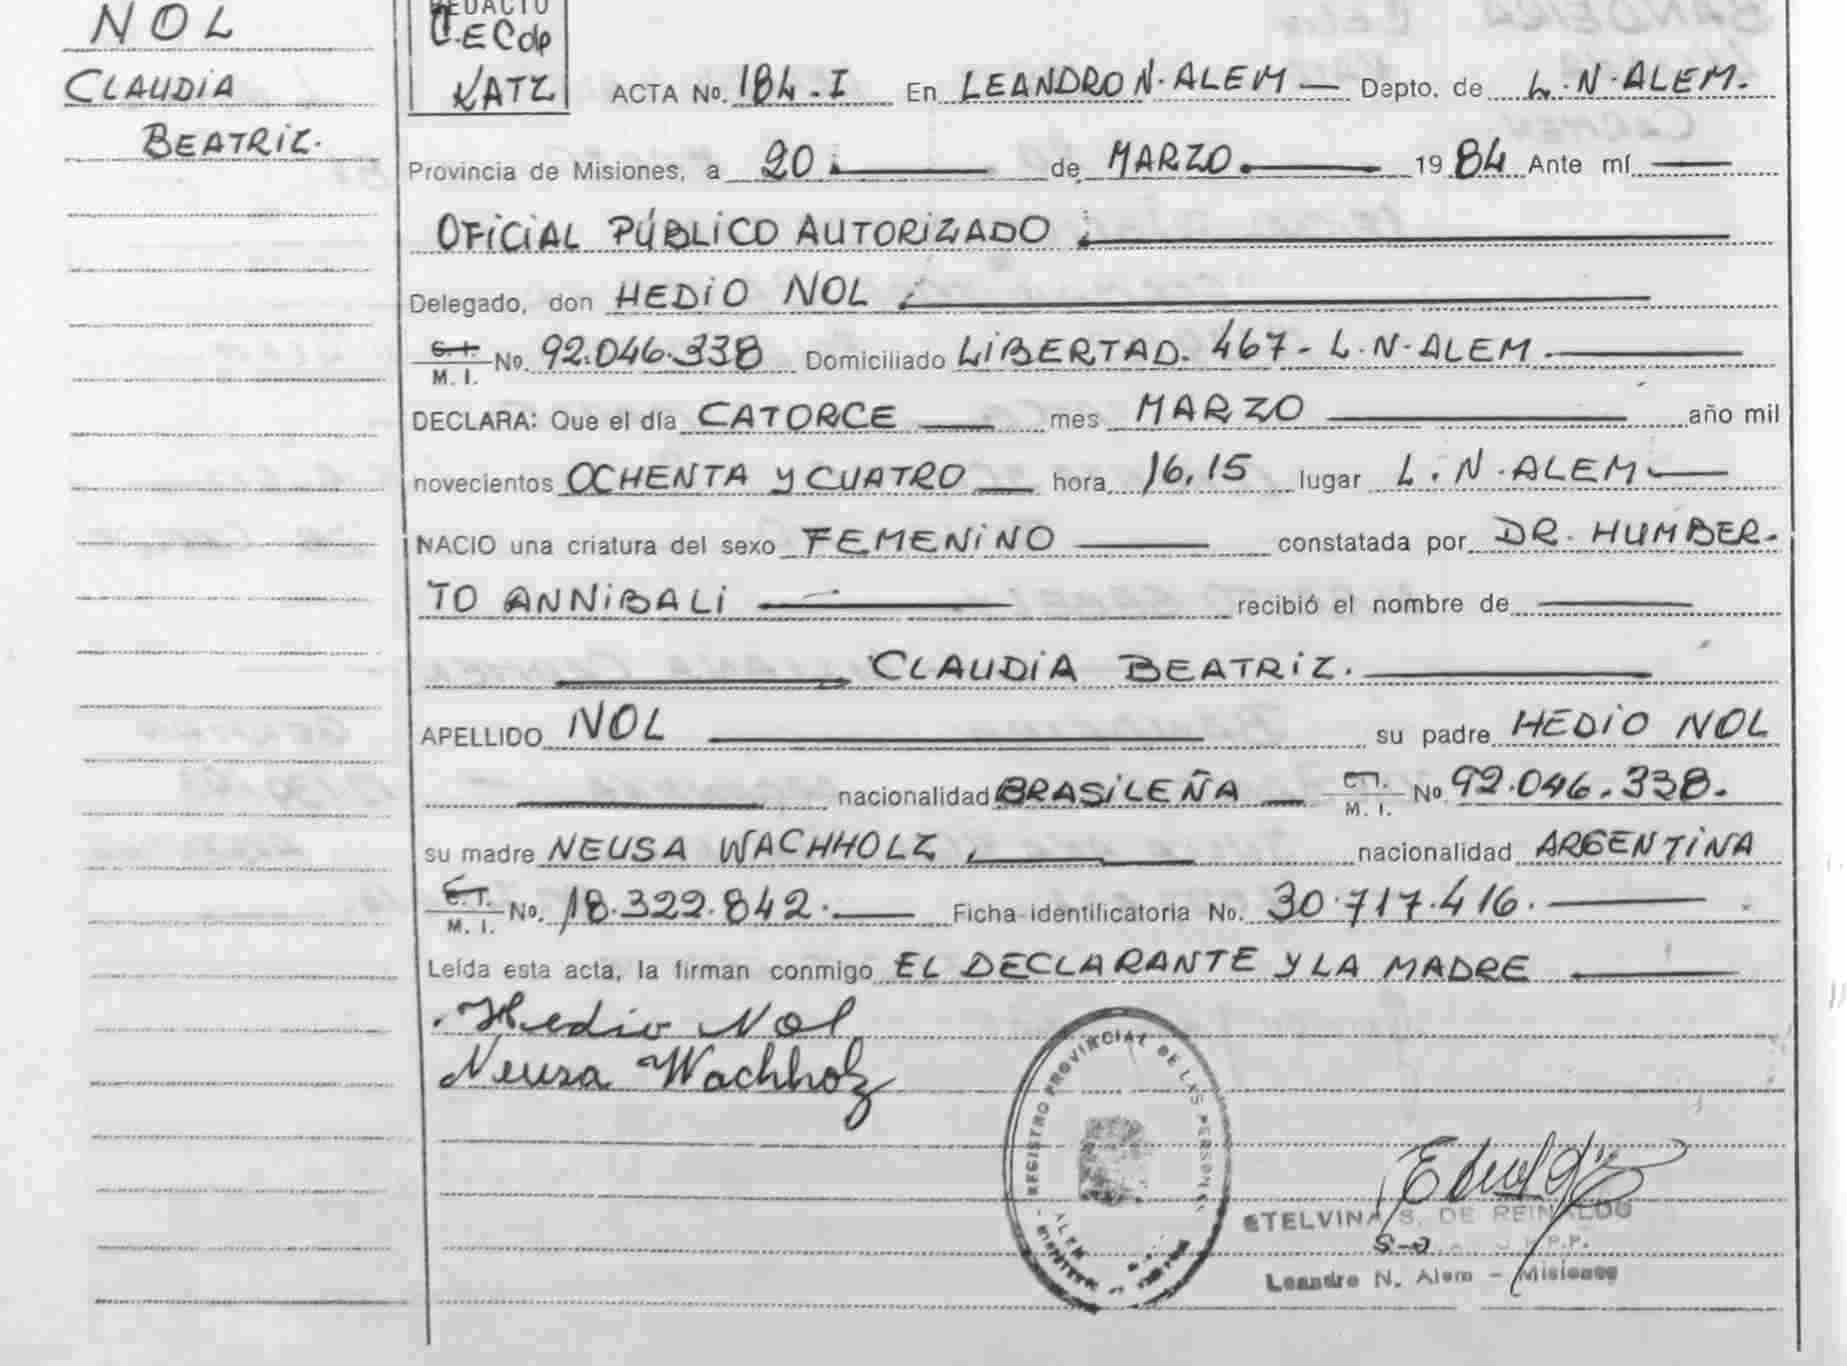 NOL
CLAUDIA
BEATRIZ.
REDACTO
KATZ
ACTA No. 184-I En LEANDRO N. ALEM — Depto. de L.N.ALEM.
Provincia de Misiones, a 20 de MARZO 1984 Ante mí
OFICIAL PÚBLICO AUTORIZADO
Delegado, don HEDIO NOL
C.I. M.I. No. 92.046.338 Domiciliado LIBERTAD. 467 - L.N.ALEM.
DECLARA: Que el día CATORCE mes MARZO año mil
novecientos OCHENTA Y CUATRO hora 16.15 lugar L.N.ALEM
NACIO una criatura del sexo FEMENINO constatada por DR. HUMBER-
TO ANNIBALI recibió el nombre de
CLAUDIA BEATRIZ.
APELLIDO NOL su padre HEDIO NOL
nacionalidad BRASILEÑA M.I. No 92.046.338.
su madre NEUSA WACHHOLZ nacionalidad ARGENTINA
M.I. No. 18.322.842. Ficha identificatoria No. 30.717.416.
Leída esta acta, la firman conmigo EL DECLARANTE Y LA MADRE
Hedio Nol
Neusa Wachholz
REGISTRO PROVINCIAL DE LAS PERSONAS
ALEM
ETELVINA S. DE REINALDO
Leandro N. Alem - Misiones